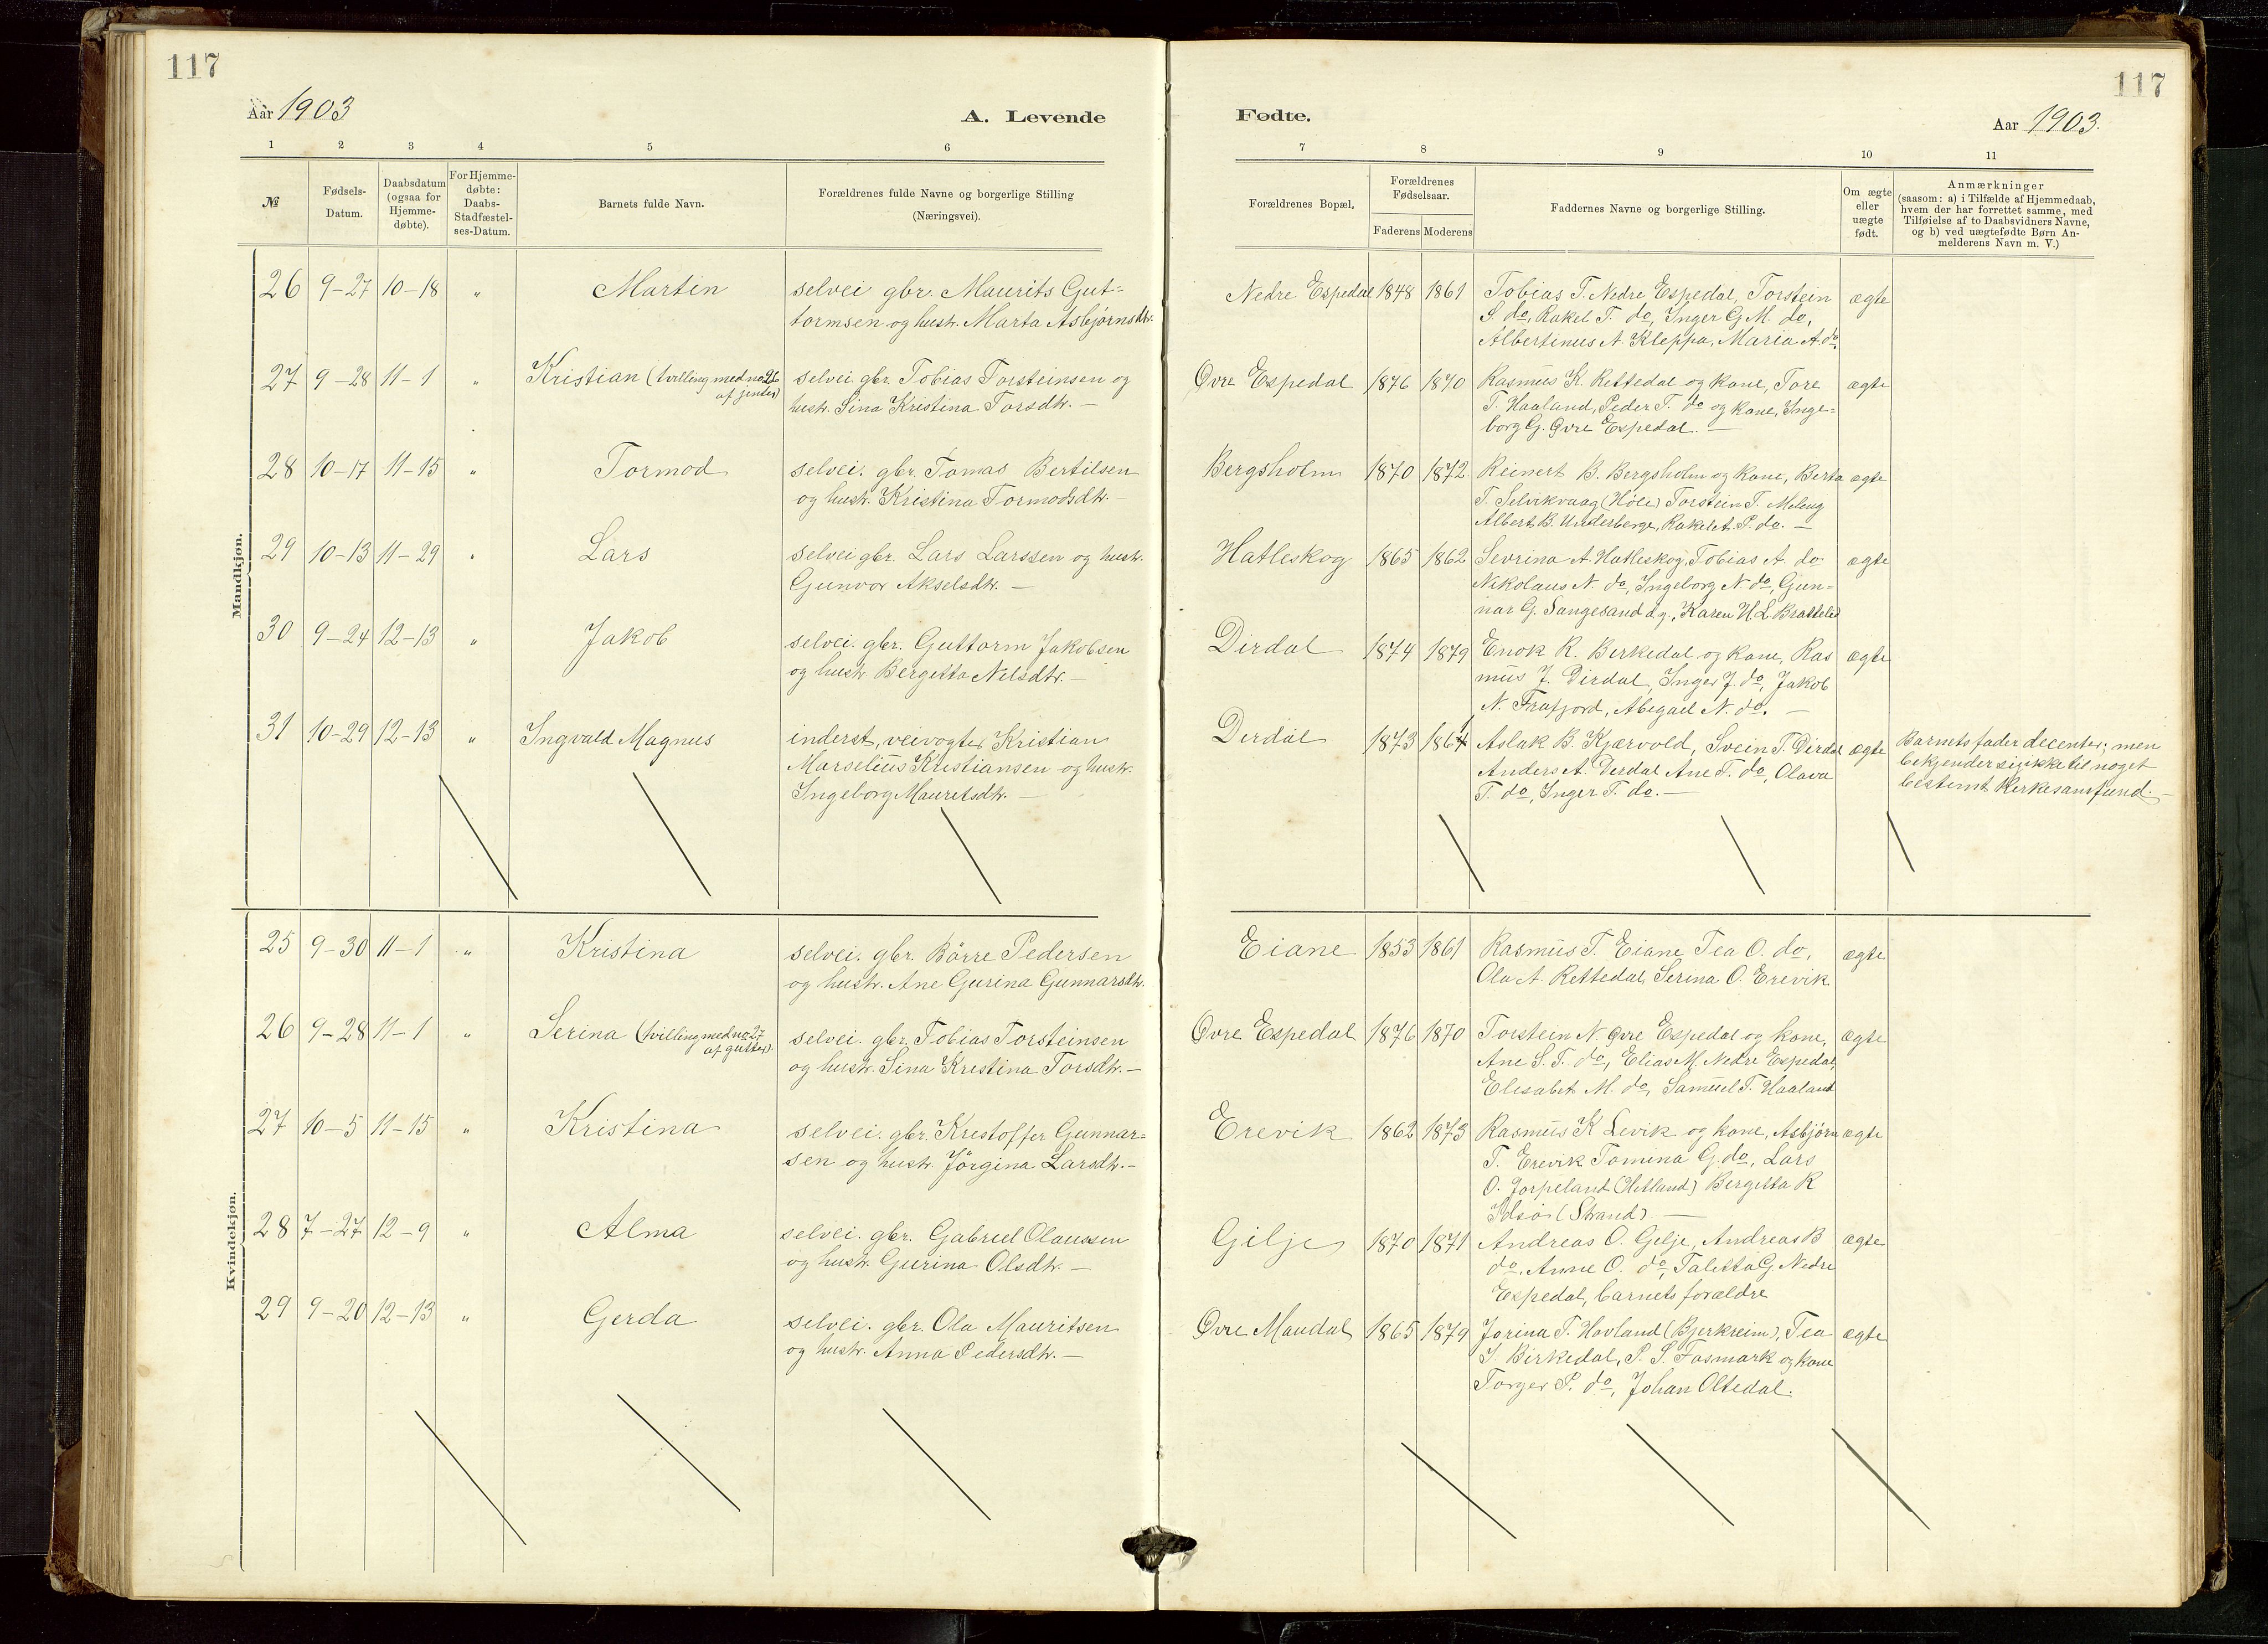 117
Aar 1903
A. Levende
1 2 3 4 5 6
№
Fødsels-
Datum.
Daabsdatum
(ogsaa for
Hjemme-
døbte).
For Hjemme-
døbte:
Daabs-
Stadfæstel-
ses-Datum.
Barnets fulde Navn.
Forældrenes fulde Navne og borgerlige Stilling
(Næringsvei).
Mandkjøn.
26 9-27 10-18 " Martin selvei gbr. Maurits Gut=
tormsen og hustr. Marta Asbjørnsdtr.
27 9-28 11-1 " Kristian (tvilling med no 26
af jenter)
selvei. gbr. Tobias Torsteinsen og
hustr. Sina Kristina Torsdtr. —
28 10-17 11-15 " Tormod selvei. gbr. Tomas Bertilsen
og hustr. Kristina Tormodsdtr. —
29 10-13 11-29 " Lars selvei gbr. Lars Larssen og hustr.
Gunvor Akselsdtr. —
30 9-24 12-13 " Jakob selvei. gbr. Guttorm Jakobsen
og hustr. Bergitta Nelsdtr. —
31 10-29 12-13 " Ingvald Magnus inderst, veivogter Kristian
Marselius Kristiansen og hustr.
Ingeborg Mauritsdtr. —
Kvindekjøn.
25 9-30 11-1 " Kristina selvei. gbr. Börre Pedersen
og hustr. Ane Gurina Gunnarsdtr.
26 9-28 11-1 " Serina (tvilling med no 27
af gutter).
selvei. gbr. Tobias Torsteinsen
og hustr. Sina Kristina Torsdtr. —
27 10-5 11-15 " Kristina selvei. gbr. Kristoffer Gunnar=
sen og hustr. Jörgina Larsdtr. —
28 7-27 12-9 " Alma selvei. gbr. Gabriel Olaussen
og hustr. Gurina Olsdtr. —
29 9-20 12-13 " Gerda selvei. gbr. Ola Mauritsen
og hustr. Anna Pedersdtr. —
117
Fødte.
Aar 1903.
7 8 9 10 11
Forældrenes Bopæl.
Forældrenes
Fødselsaar.
Faderens Moderens
Faddernes Navne og borgerlige Stilling.
Om ægte
eller
uægte
født.
Anmærkninger
(saasom: a) i Tilfælde af Hjemmedaab,
hvem der har forrettet samme, med
Tilføielse af to Daabsvidners Navne,
og b) ved uægtefødte Børn An-
melderens Navn m. V.)
Nedre Espedal 1848 1861 Tobias T. Nedre Espedal, Torstein ægte
S. do, Rakel T. do, Inger G. M. do,
Albertinus A. Kleppa, Maria A. do.
Øvre Espedal 1876 1870 Rasmus K. Rettedal og kone, Tore ægte
T. Haaland, Peder T. do og kone, Inge=
borg G. Øvre Espedal. —
Bergsholm 1870 1872 Reinert B. Bergsholm og kone, Berta ægte
T. Selvikvaag (Höle) Torstein T. Meling
Albert B. Underberge, Rakel A. P. do. —
Hatleskog 1865 1862 Sevrina A. Hatleskog, Tobias A. do ægte
Nikolaus N. do, Ingeborg N. do, Gun=
nar G. Sangesand d.y., Karen H. L. Brattelid
Dirdal 1874 1879 Enok R. Berkedal og kone, Ras ægte
mus J. Dirdal, Inger J. do, Jakob
N. Frafjord, Abigael N. do. —
Dirdal 1873 1864 Aslak B. Kjærvold, Svein T. Dirdal ægte
Anders A. Dirdal Ane T. do, Olava
T. do, Inger T. do. —
Barnets fader decenter; men
bekjender sig ikke til noget
bestemt Kirkesamfund. —
Eiane 1853 1861 Rasmus T. Eiane Tea O. do, ægte
Ola A. Rettedal, Serina O. Erevik
Øvre Espedal 1876 1870 Torstein N. Øvre Espedal og kone, ægte
Ane S. T. do, Elias M. Nedre Espedal,
Elisabet M. do, Samuel T. Haaland
Erevik 1862 1873 Rasmus K Levik og kone, Asbjörn ægte
T. Erevik Tomina G. do, Lars
O. Jorpeland (Hetland) Bergitta R
Idsö (Strand). —
Gilje 1870 1871 Andreas O. Gilje, Andreas B ægte
do, Anne O. do, Taletta G. Nedre
Espedal, barnets forældre
Øvre Maudal 1865 1879 Jorina T. Hovland (Bjerkreim), Tea ægte
I. Birkedal, P. S. Fosmark og kone
Torger P. do, Johan Oltedal.